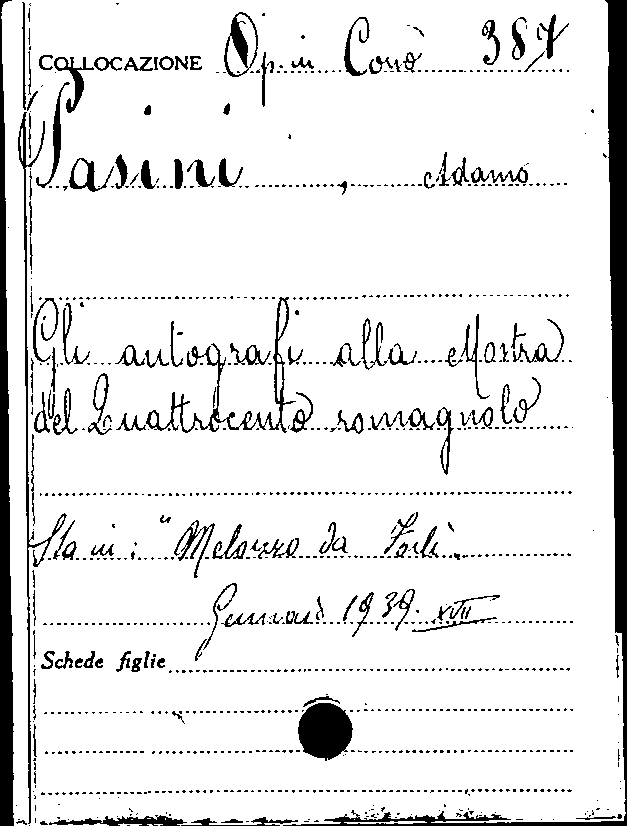 COLLOCAZIONE Op. in Cons 387
Pasini, Adamo
Gli autografi alla Mostra
del Quattrocento romagnolo
Sta in: "Melozzo da Forlì"
Gennaio 1939. XVII
Schede figlie